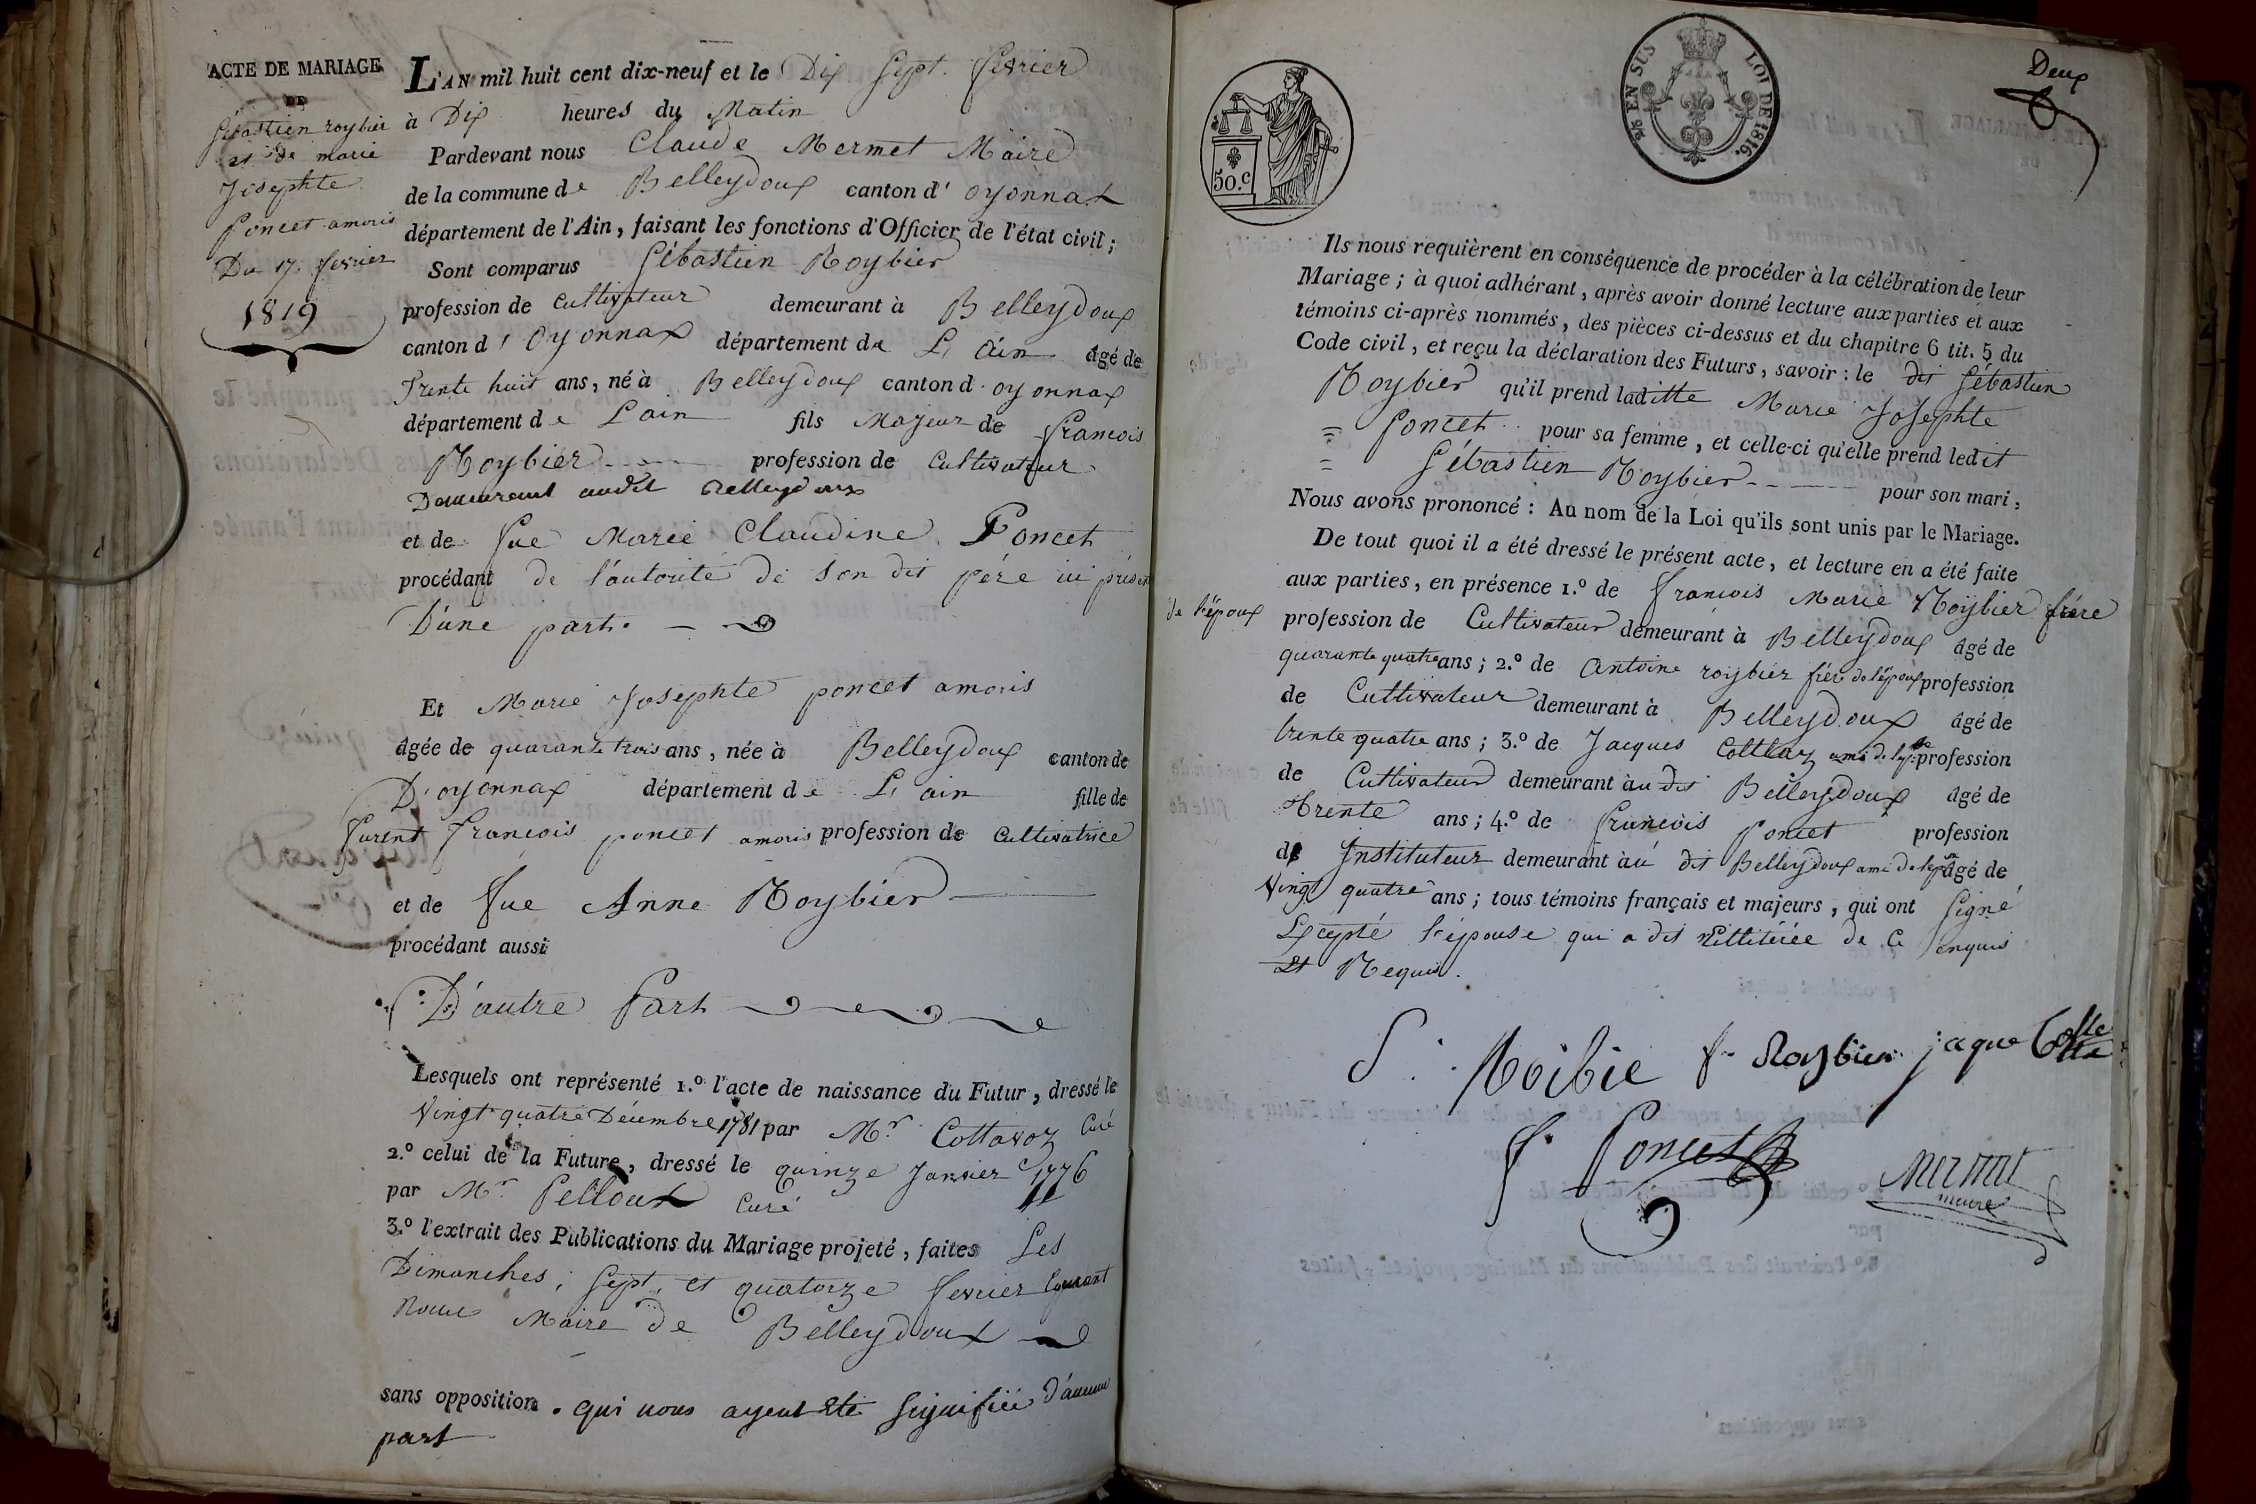 ACTE DE MARIAGE
DE
Sébastien roybier
et de marie
Josephte
poncet amoris
Du 17 fevrier
1819
L'AN mil huit cent dix-neuf et le Dix Sept fevrier
à Dix heures du Matin
Pardevant nous Claude Mermet Maire
de la commune de Belleydoux canton d' oyonnax
département de l'Ain, faisant les fonctions d'Officier de l'état civil;
Sont comparus Sébastien Roybier
profession de Cultivateur demeurant à Belleydoux
canton d' Oyonnax département de L'ain âgé de
Trente huit ans, né à Belleydoux canton d. oyonnax
département de Lain fils Majeur de François
Roybier profession de Cultivateur
Demeurant audit Belleydoux
et de fue Marie Claudine Poncet
procédant de l'autorité de Son dit père ici présent
D'une part.
Et Marie Josephte poncet amoris
âgée de quarante trois ans, née à Belleydoux canton de
D'oyonnax département de L'ain fille de
furent françois poncet amoris profession de Cultivatrice
et de fue Anne Roybier
procédant aussi
D'autre Part
Lesquels ont représenté 1.º l'acte de naissance du Futur, dressé le
Vingt quatre Décembre 1781 par Mr. Cottavoz Curé
2.º celui de la Future, dressé le quinze Janvier 1776
par Mr. Pelloux Curé
3.º l'extrait des Publications du Mariage projeté, faites Les
Dimanches, Sept, et quatorze fevrier Courant
Maire de Belleydoux
sans opposition. qui nous ayent été signifiée d'aucune
part
50.c
2/6 EN SUS LOI DE 1816.
Deux
Ils nous requièrent en conséquence de procéder à la célébration de leur
Mariage; à quoi adhérant, après avoir donné lecture aux parties et aux
témoins ci-après nommés, des pièces ci-dessus et du chapitre 6 tit. 5 du
Code civil, et reçu la déclaration des Futurs, savoir: le dit Sébastien
Roybier qu'il prend laditte Marie Josephte
Poncet pour sa femme, et celle-ci qu'elle prend ledit
Sébastien Roybier pour son mari;
Nous avons prononcé: Au nom de la Loi qu'ils sont unis par le Mariage.
De tout quoi il a été dressé le présent acte, et lecture en a été faite
aux parties, en présence 1.º de françois Marie Roybier frère
de l'époux profession de Cultivateur demeurant à Belleydoux âgé de
quarante quatre ans; 2.º de Antoine roybier frère de l'époux profession
de Cultivateur demeurant à Belleydoux âgé de
trente quatre ans; 3.º de Jacques ami de profession
de Cultivateur demeurant au dit Belleydoux âgé de
trente ans; 4.º de François Poncet profession
de Instituteur demeurant àu dit Belleydoux ami de âgé de
Vingt quatre ans; tous témoins français et majeurs, qui ont Signé
Excepté l'épouse qui a dit de Ce enquis
Et Requis.
S. Roibie f. Roybier jaque
f. Poncet
Mermet
maire